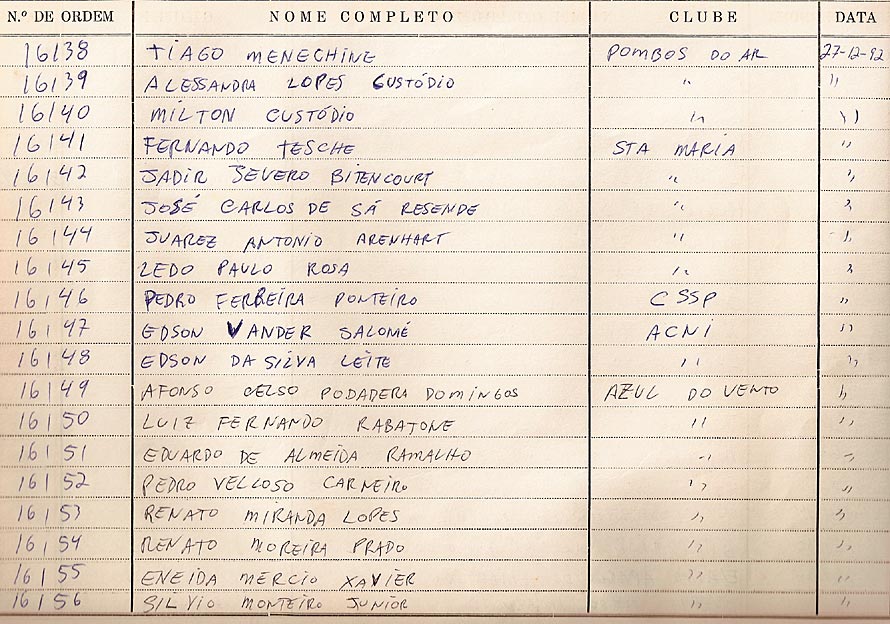 N.º DE ORDEM NOME COMPLETO CLUBE DATA
16138 TIAGO MENECHINE POMBOS DO AR 27-12-92
16139 ALESSANDRA LOPES CUSTÓDIO " "
16140 MILTON CUSTÓDIO " "
16141 FERNANDO TESCHE STA MARIA "
16142 JADIR SEVERO BITENCOURT " "
16143 JOSÉ CARLOS DE SÁ RESENDE " "
16144 JUAREZ ANTONIO ARENHART " "
16145 LEDO PAULO ROSA " "
16146 PEDRO FERREIRA PONTEIRO CSSP "
16147 EDSON VANDER SALOMÉ ACNI "
16148 EDSON DA SILVA LEITE " "
16149 AFONSO CELSO PODADERA DOMINGOS AZUL DO VENTO "
16150 LUIZ FERNANDO RABATONE " "
16151 EDUARDO DE ALMEIDA RAMALHO " "
16152 PEDRO VELLOSO CARNEIRO " "
16153 RENATO MIRANDA LOPES " "
16154 RENATO MOREIRA PRADO " "
16155 ENEIDA MÉRCIO XAVIER " "
16156 SILVIO MONTEIRO JUNIOR " "